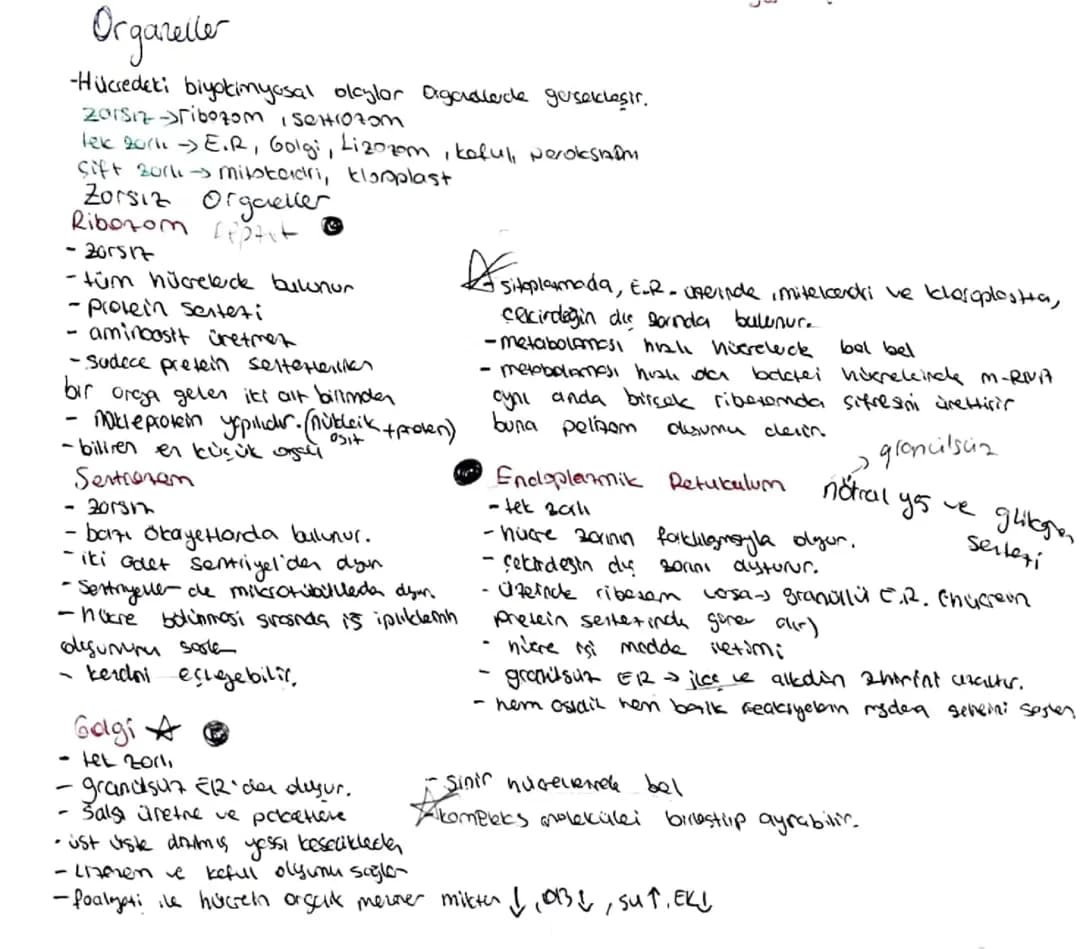 Organeller
-Hücredeki biyokimyasal olaylar organellerde gerçekleşir.
zarsız → ribozom, sentrozom
tek zarlı → E.R, Golgi, Lizozom, koful, peroksizom
çift zarlı → mitokondri, kloroplast
Zarsız Organeller
Ribozom
- zarsız
- tüm hücrelerde bulunur
- protein sentezi
- aminoasit üretmez
- sadece protein sentezlenirken
bir araya gelen iki alt birimden
- nükleprotein yapılıdır. (nükleik asit + protein)
- bilinen en küçük organel
Sentrozom
- zarsız
- bazı ökaryotlarda bulunur.
- iki adet sentriyol'den oluşan
- Sentriyoller de mikrotübüllerden oluşan
- hücre bölünmesi sırasında iğ ipliklerinin
oluşumunu sağlar
- kendini eşleyebilir.
Golgi
- tek zarlı
- granülsüz ER'den oluşur.
- Salgı üretme ve paketleme
- üst üste dizilmiş yassı keseciklerden
- Lizozom ve koful oluşumu sağlar
- faaliyeti ile hücrenin organik monomer miktarı ↓, OB ↓, su ↑, EK↓
- sinir hücrelerinde bol
kompleks molekülleri birleştirip ayırabilir.
sitoplazmada, E.R. üzerinde, mitokondri ve kloroplastta,
çekirdeğin dış zarında bulunur.
- metabolizması hızlı hücrelerde bol bol
- metabolizması hızlı olan bakteri hücrelerinde m-RNA
aynı anda birçok ribozomda şifresini ürettirir
buna polizom oluşumu denir.
Endoplazmik Retukulum
- tek zarlı
- hücre zarının farklılaşmasıyla oluşur.
- çekirdeğin dış zarını oluşturur.
- üzerinde ribozom varsa → granüllü E.R.
protein sentezinde görev alır)
- hücre içi madde iletimi
- granülsüz ER → ilaç ve alkolün zehrini azaltır.
- hem asidik hem bazik reaksiyonların
granülsüz
nötral yağ ve glikojen
sentezi